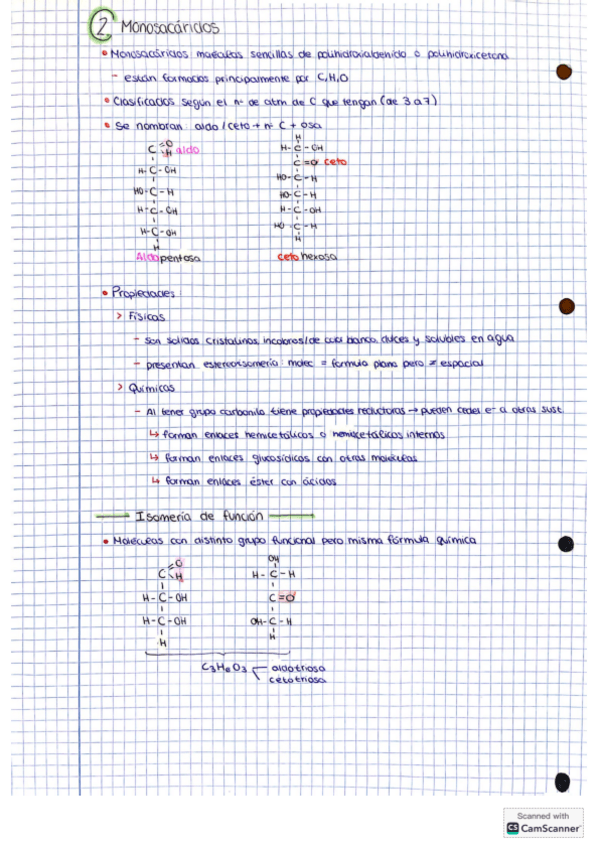 2 Monosacáridos
• Monosacáridos moléculas sencillas de polihidroxialdehido o polihidroxicetona
- están formados principalmente por C, H, O
• Clasificados según el nº de atm de C que tengan (de 3 a 7)
• Se nombran: aldo / ceto + nº C + osa
C =O H aldo
H-C-OH
HO-C-H
H-C-OH
H-C-OH
H
Aldopentosa
H
H-C-OH
C=O ceto
HO-C-H
HO-C-H
H-C-OH
HO-C-H
H
cetohexosa
• Propiedades:
> Físicas
- son sólidos cristalinos, incoloros/de color blanco, dulces y solubles en agua
- presentan estereoisomería: molec = formula plana pero ≠ espacial
> Químicas
- Al tener grupo carbonilo tiene propiedades reductoras → pueden ceder e- a otras sust.
↳ forman enlaces hemicetálicos o hemiacetálicos internos
↳ forman enlaces glucosídicos con otras moléculas
↳ forman enlaces éster con ácidos
Isomería de función
• Moléculas con distinto grupo funcional pero misma fórmula química
C =O H
H-C-OH
H-C-OH
H
OH
H-C-H
C=O
OH-C-H
H
C3H6O3
aldotriosa
cetotriosa
Scanned with
CS CamScanner